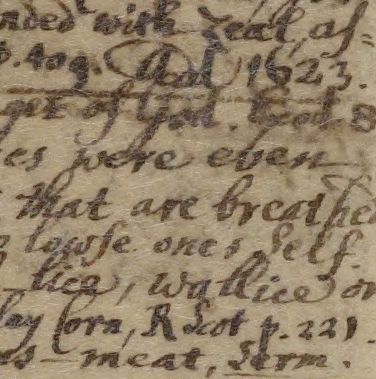 nded with Zeal, as=
p. 409. Vol 1623.
ger of God. God B
es were even
that are breathed
lowse ones self.
-lice, wallice or
lay Corn, R Scot p. 221
ns-meat, Serm.